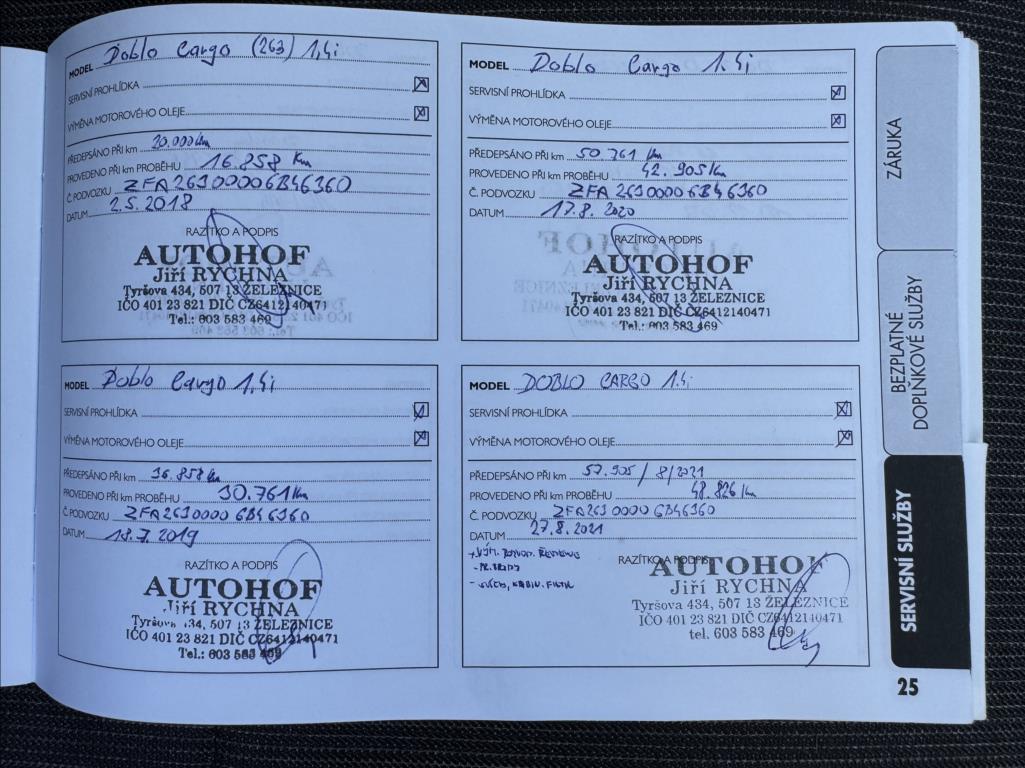 MODEL Doblo Cargo (263) 1,4i
SERVISNÍ PROHLÍDKA
VÝMĚNA MOTOROVÉHO OLEJE
PŘEDEPSÁNO PŘI km 20.000km
PROVEDENO PŘI km PROBĚHU 16.858 Km
Č. PODVOZKU ZFA26300006B46360
DATUM 2.5.2018
RAZÍTKO A PODPIS
AUTOHOF
Jiří RYCHNA
Tyršova 434, 507 13 ŽELEZNICE
IČO 401 23 821 DIČ CZ6412140471
Tel.: 603 583 469
MODEL Doblo Cargo 1.4i
SERVISNÍ PROHLÍDKA
VÝMĚNA MOTOROVÉHO OLEJE
PŘEDEPSÁNO PŘI km 50 761 Km
PROVEDENO PŘI km PROBĚHU 42.905 Km
Č. PODVOZKU ZFA26300006B46360
DATUM 17.8.2020
RAZÍTKO A PODPIS
AUTOHOF
Jiří RYCHNA
Tyršova 434, 507 13 ŽELEZNICE
IČO 401 23 821 DIČ CZ6412140471
Tel.: 603 583 469
MODEL Doblo Cargo 1,4i
SERVISNÍ PROHLÍDKA
VÝMĚNA MOTOROVÉHO OLEJE
PŘEDEPSÁNO PŘI km 36.858 km
PROVEDENO PŘI km PROBĚHU 30.761 Km
Č. PODVOZKU ZFA26300006B46360
DATUM 18.7.2019
RAZÍTKO A PODPIS
AUTOHOF
Jiří RYCHNA
Tyršova 434, 507 13 ŽELEZNICE
IČO 401 23 821 DIČ CZ6412140471
Tel.: 603 583 469
MODEL DOBLO CARGO 1.4i
SERVISNÍ PROHLÍDKA
VÝMĚNA MOTOROVÉHO OLEJE
PŘEDEPSÁNO PŘI km 57.905 / 8/2021
PROVEDENO PŘI km PROBĚHU 48.826 Km
Č. PODVOZKU ZFA2630000 6B46360
DATUM 27.8.2021
RAZÍTKO A PODPIS
AUTOHOF
Jiří RYCHNA
Tyršova 434, 507 13 ŽELEZNICE
IČO 401 23 821 DIČ CZ6412140471
tel. 603 583 469
ZÁRUKA
BEZPLATNÉ
DOPLŇKOVÉ SLUŽBY
SERVISNÍ SLUŽBY
25